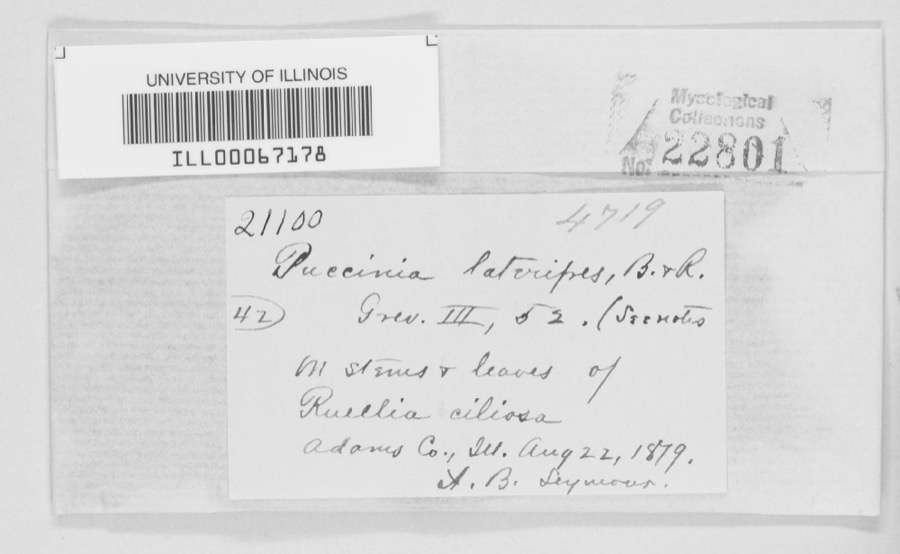 UNIVERSITY OF ILLINOIS
ILL00067178
Mycological
Collections
No. 22801
21100
4719
Puccinia lateripes, B. & R.
42
Grev. III, 52. (See notes
on stems & leaves of
Ruellia ciliosa
Adams Co., Ill. Aug 22, 1879.
A. B. Seymour.